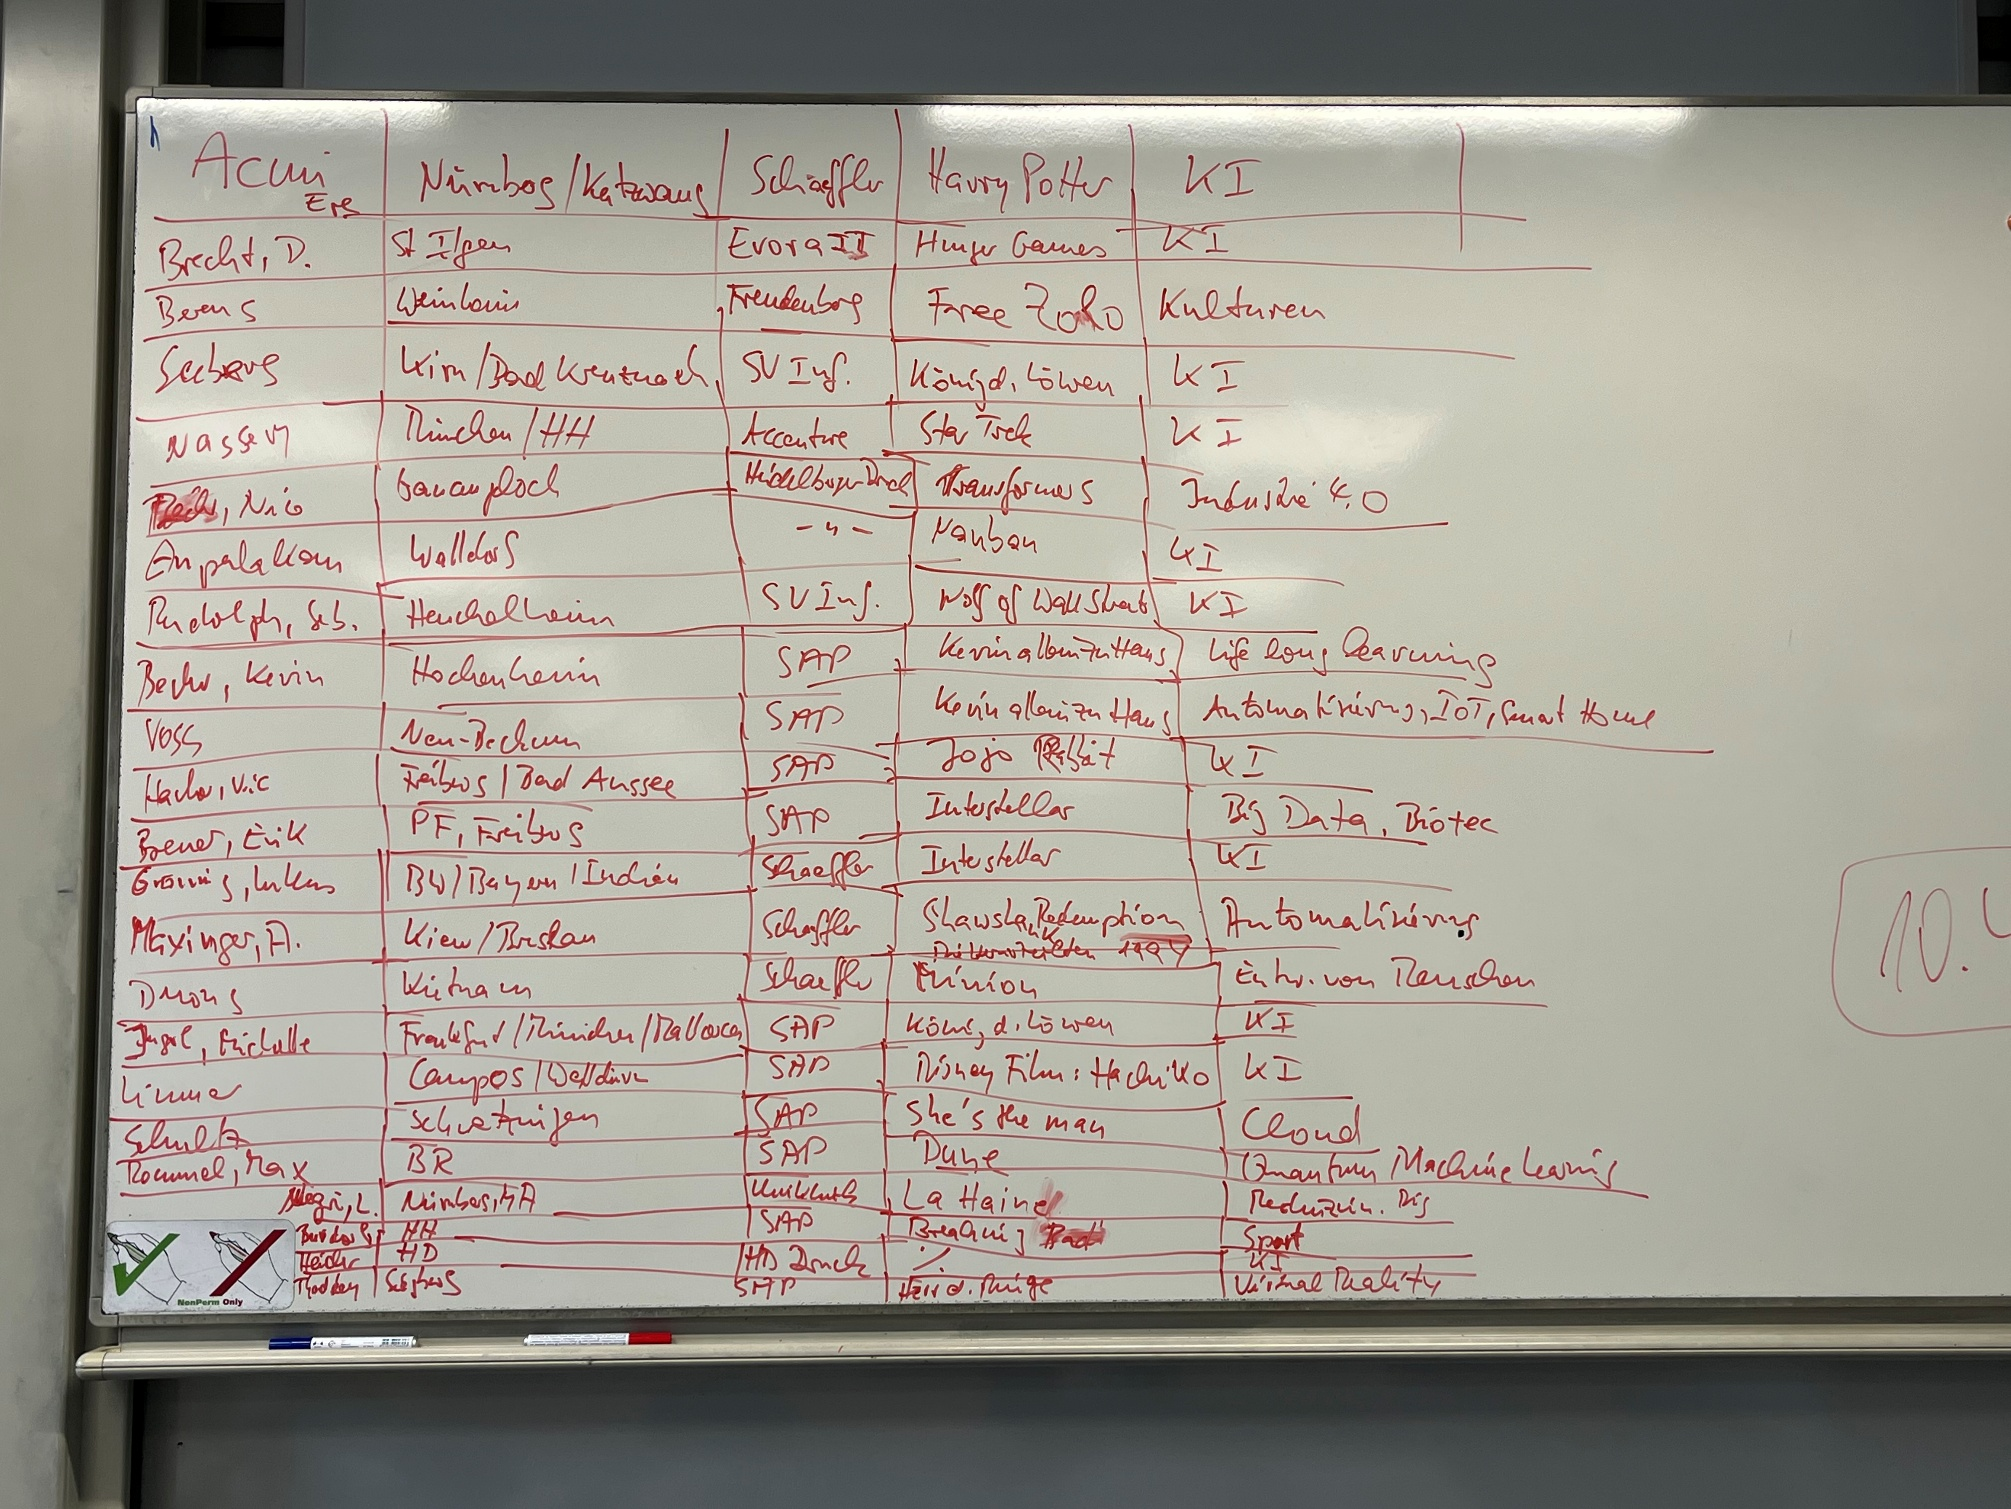 Acuri Nürnberg/Katzwang Schaeffler Harry Potter KI
Brecht, D. St Ilgen Evora II Hunger Games KI
Berens Weinheim Freudenberg Free Kulturen
Seeberg Kirn/Bad Kreuznach SV Inf. König d. Löwen KI
München/HH Accenture Star Trek KI
, Nico Gauangelloch Heidelberger Druck Transformers Industrie 4.0
Anpalakan Walldorf -"- Nanban KI
Rudolph, Seb. Heuchelheim SV Inf. Wolf of Wall Street KI
Becker, Kevin Hockenheim SAP Kevin allein zu Haus Life long learning
Voss Neu-Beckum SAP Kevin allein zu Haus Automatisierung, IOT, Smart Home
Freiberg/Bad Aussee SAP Jojo Rabbit KI
, Erik PF, Freiberg SAP Interstellar Big Data, Biotec
, Lukas BW/Bayern/Indien Schaeffler Interstellar KI
Maxinger, A. Kiew/Breslau Schaeffler Redemption Automatisierung
1994
Duong Vietnam Schaeffler Minion Entw. von Menschen
, Michelle Frankfurt/München/Mallorca SAP König d. Löwen KI
Campos/Walldürn SAP Disney Film: Hachiko KI
Schultz Schwetzingen SAP She's the man Cloud
Rommel, Max BR SAP Dune Quantum Machine Learning
, L. Nürnberg, MA La Haine
HH SAP Breaking Bad Sport
HD HD Druck ./. KI
SAP Herr d. Ringe Virtual Reality
NonPerm Only
10.